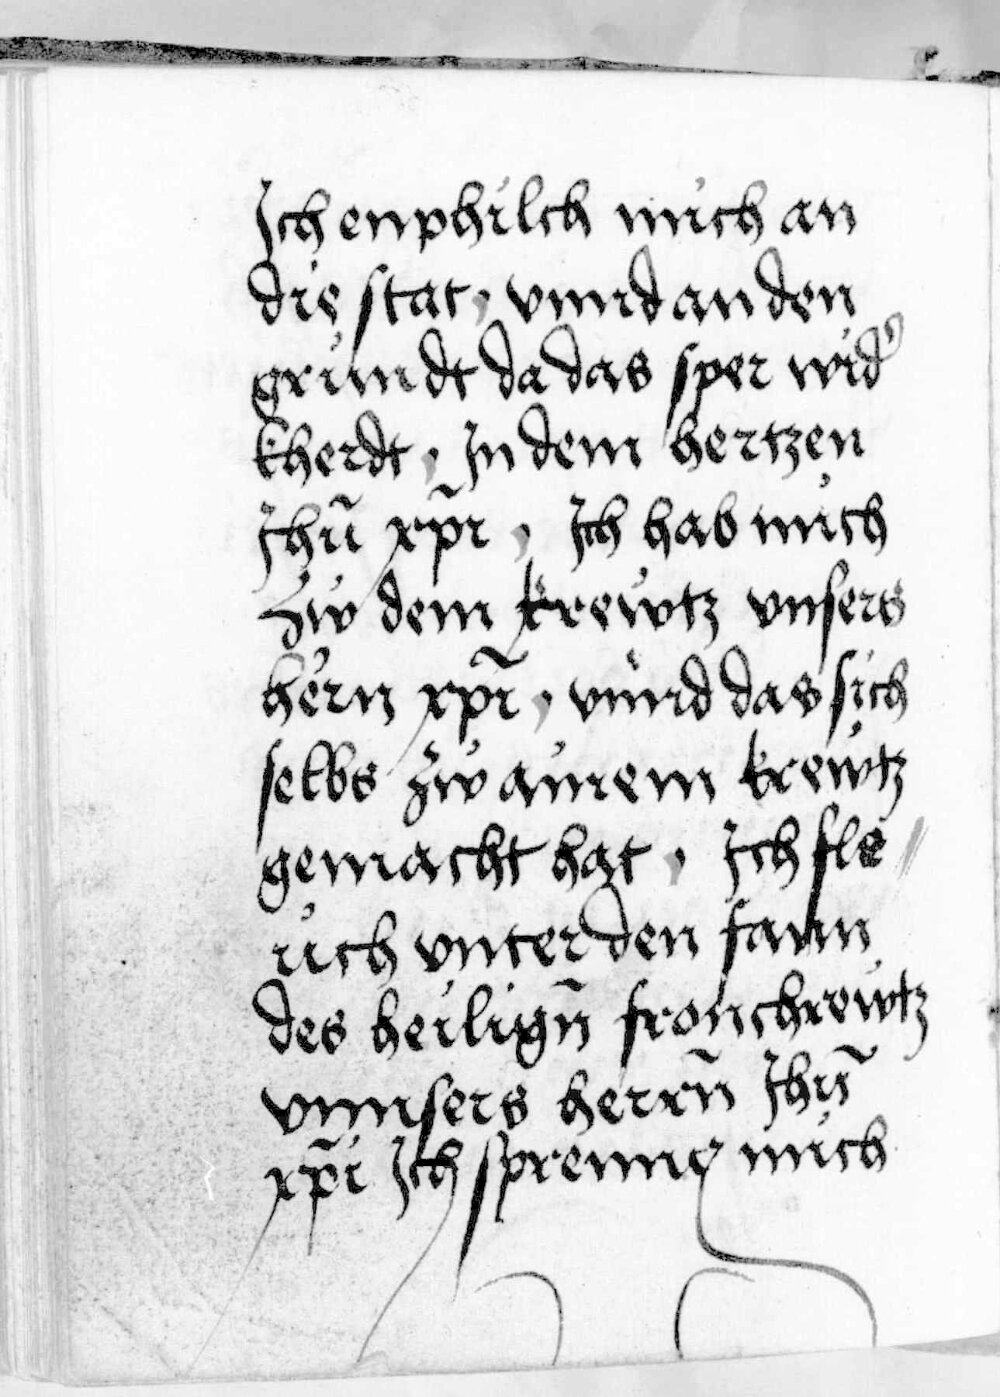 Ich enphilch mich an
die stat, vnnd an den
grundt da das sper wid᾿
kherdt, In dem hertzen
Jhū xp̄i, Ich hab mich
zw dem krewtz vnsers
hern xp̄i, vnnd das sich
selbs zw ainem krewtz
gemacht hat, Ich fle //
uch vnter den fann
des heilign̄ fronchrewtz
vnnsers herrn̄ Jhū
xp̄i Ich spreng mich